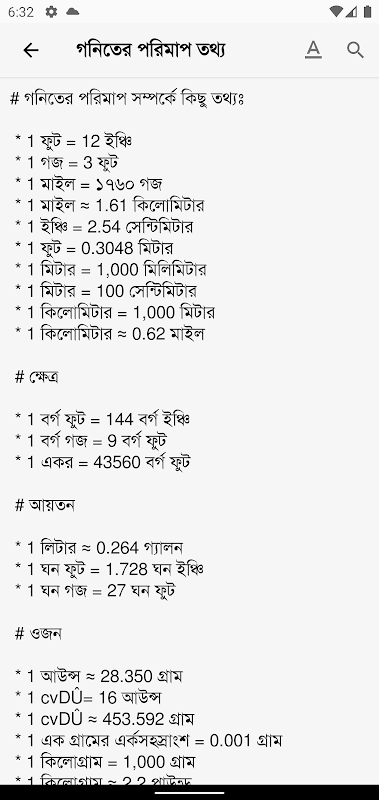 6:32
গনিতের পরিমাপ তথ্য
A
# গনিতের পরিমাপ সম্পর্কে কিছু তথ্যঃ
* 1 ফুট = 12 ইঞ্চি
* 1 গজ = 3 ফুট
* 1 মাইল = ১৭৬০ গজ
* 1 মাইল ≈ 1.61 কিলোমিটার
* 1 ইঞ্চি = 2.54 সেন্টিমিটার
* 1 ফুট = 0.3048 মিটার
* 1 মিটার = 1,000 মিলিমিটার
* 1 মিটার = 100 সেন্টিমিটার
* 1 কিলোমিটার = 1,000 মিটার
* 1 কিলোমিটার ≈ 0.62 মাইল
# ক্ষেত্র
* 1 বর্গ ফুট = 144 বর্গ ইঞ্চি
* 1 বর্গ গজ = 9 বর্গ ফুট
* 1 একর = 43560 বর্গ ফুট
# আয়তন
* 1 লিটার ≈ 0.264 গ্যালন
* 1 ঘন ফুট = 1.728 ঘন ইঞ্চি
* 1 ঘন গজ = 27 ঘন ফুট
# ওজন
* 1 আউন্স ≈ 28.350 গ্রাম
* 1 cvDÛ= 16 আউন্স
* 1 cvDÛ ≈ 453.592 গ্রাম
* 1 এক গ্রামের এর্কসহস্রাংশ = 0.001 গ্রাম
* 1 কিলোগ্রাম = 1,000 গ্রাম
* 1 কিলোগ্রাম ≈ 2.2 পাউন্ড